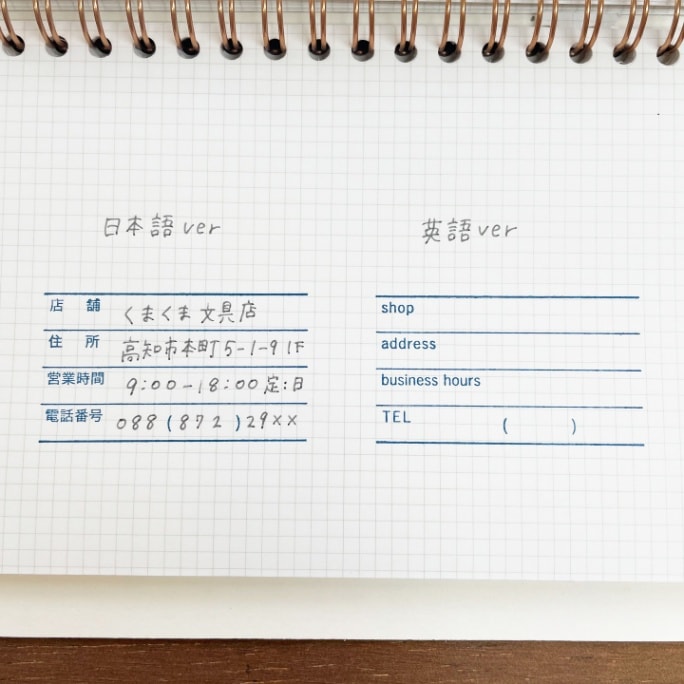 日本語ver
店舗 くまくま文具店
住所 高知市本町5-1-9 1F
営業時間 9:00-18:00 定:日
電話番号 088(872)29××
英語ver
shop
address
business hours
TEL ( )